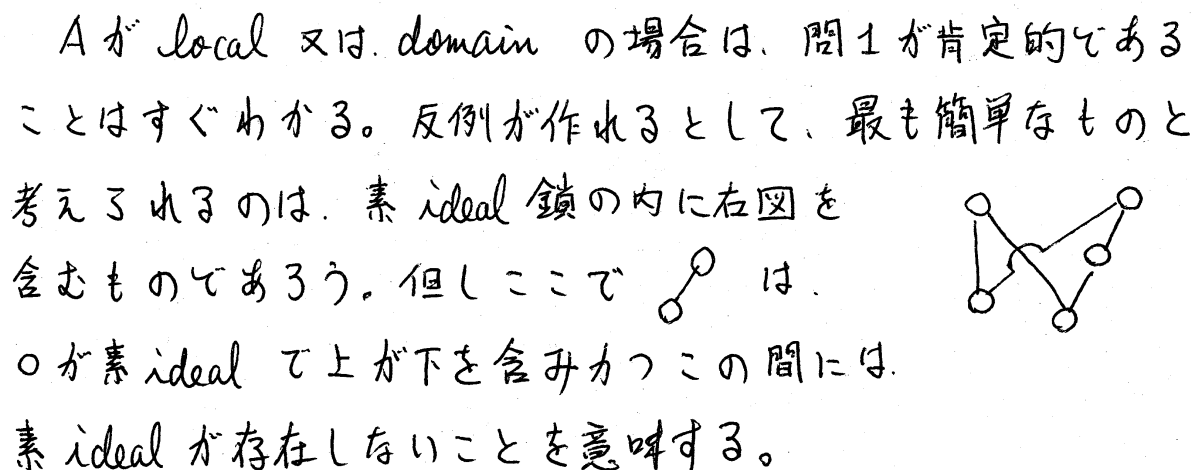 Aが local 又は、domain の場合は、問1が肯定的である
ことはすぐわかる。反例が作れるとして、最も簡単なものと
考えられるのは、素 ideal 鎖の内に右図を
含むものであろう。但しここで は、
○が素 ideal で上が下を含みかつこの間には、
素 ideal が存在しないことを意味する。